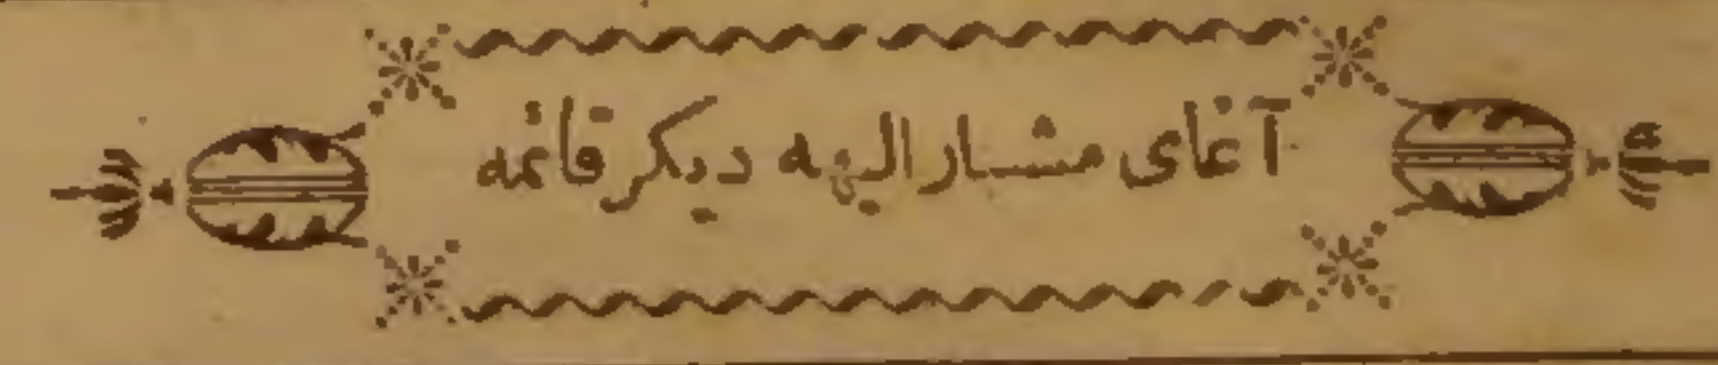 آغای مشار الیه دیکر قائمه